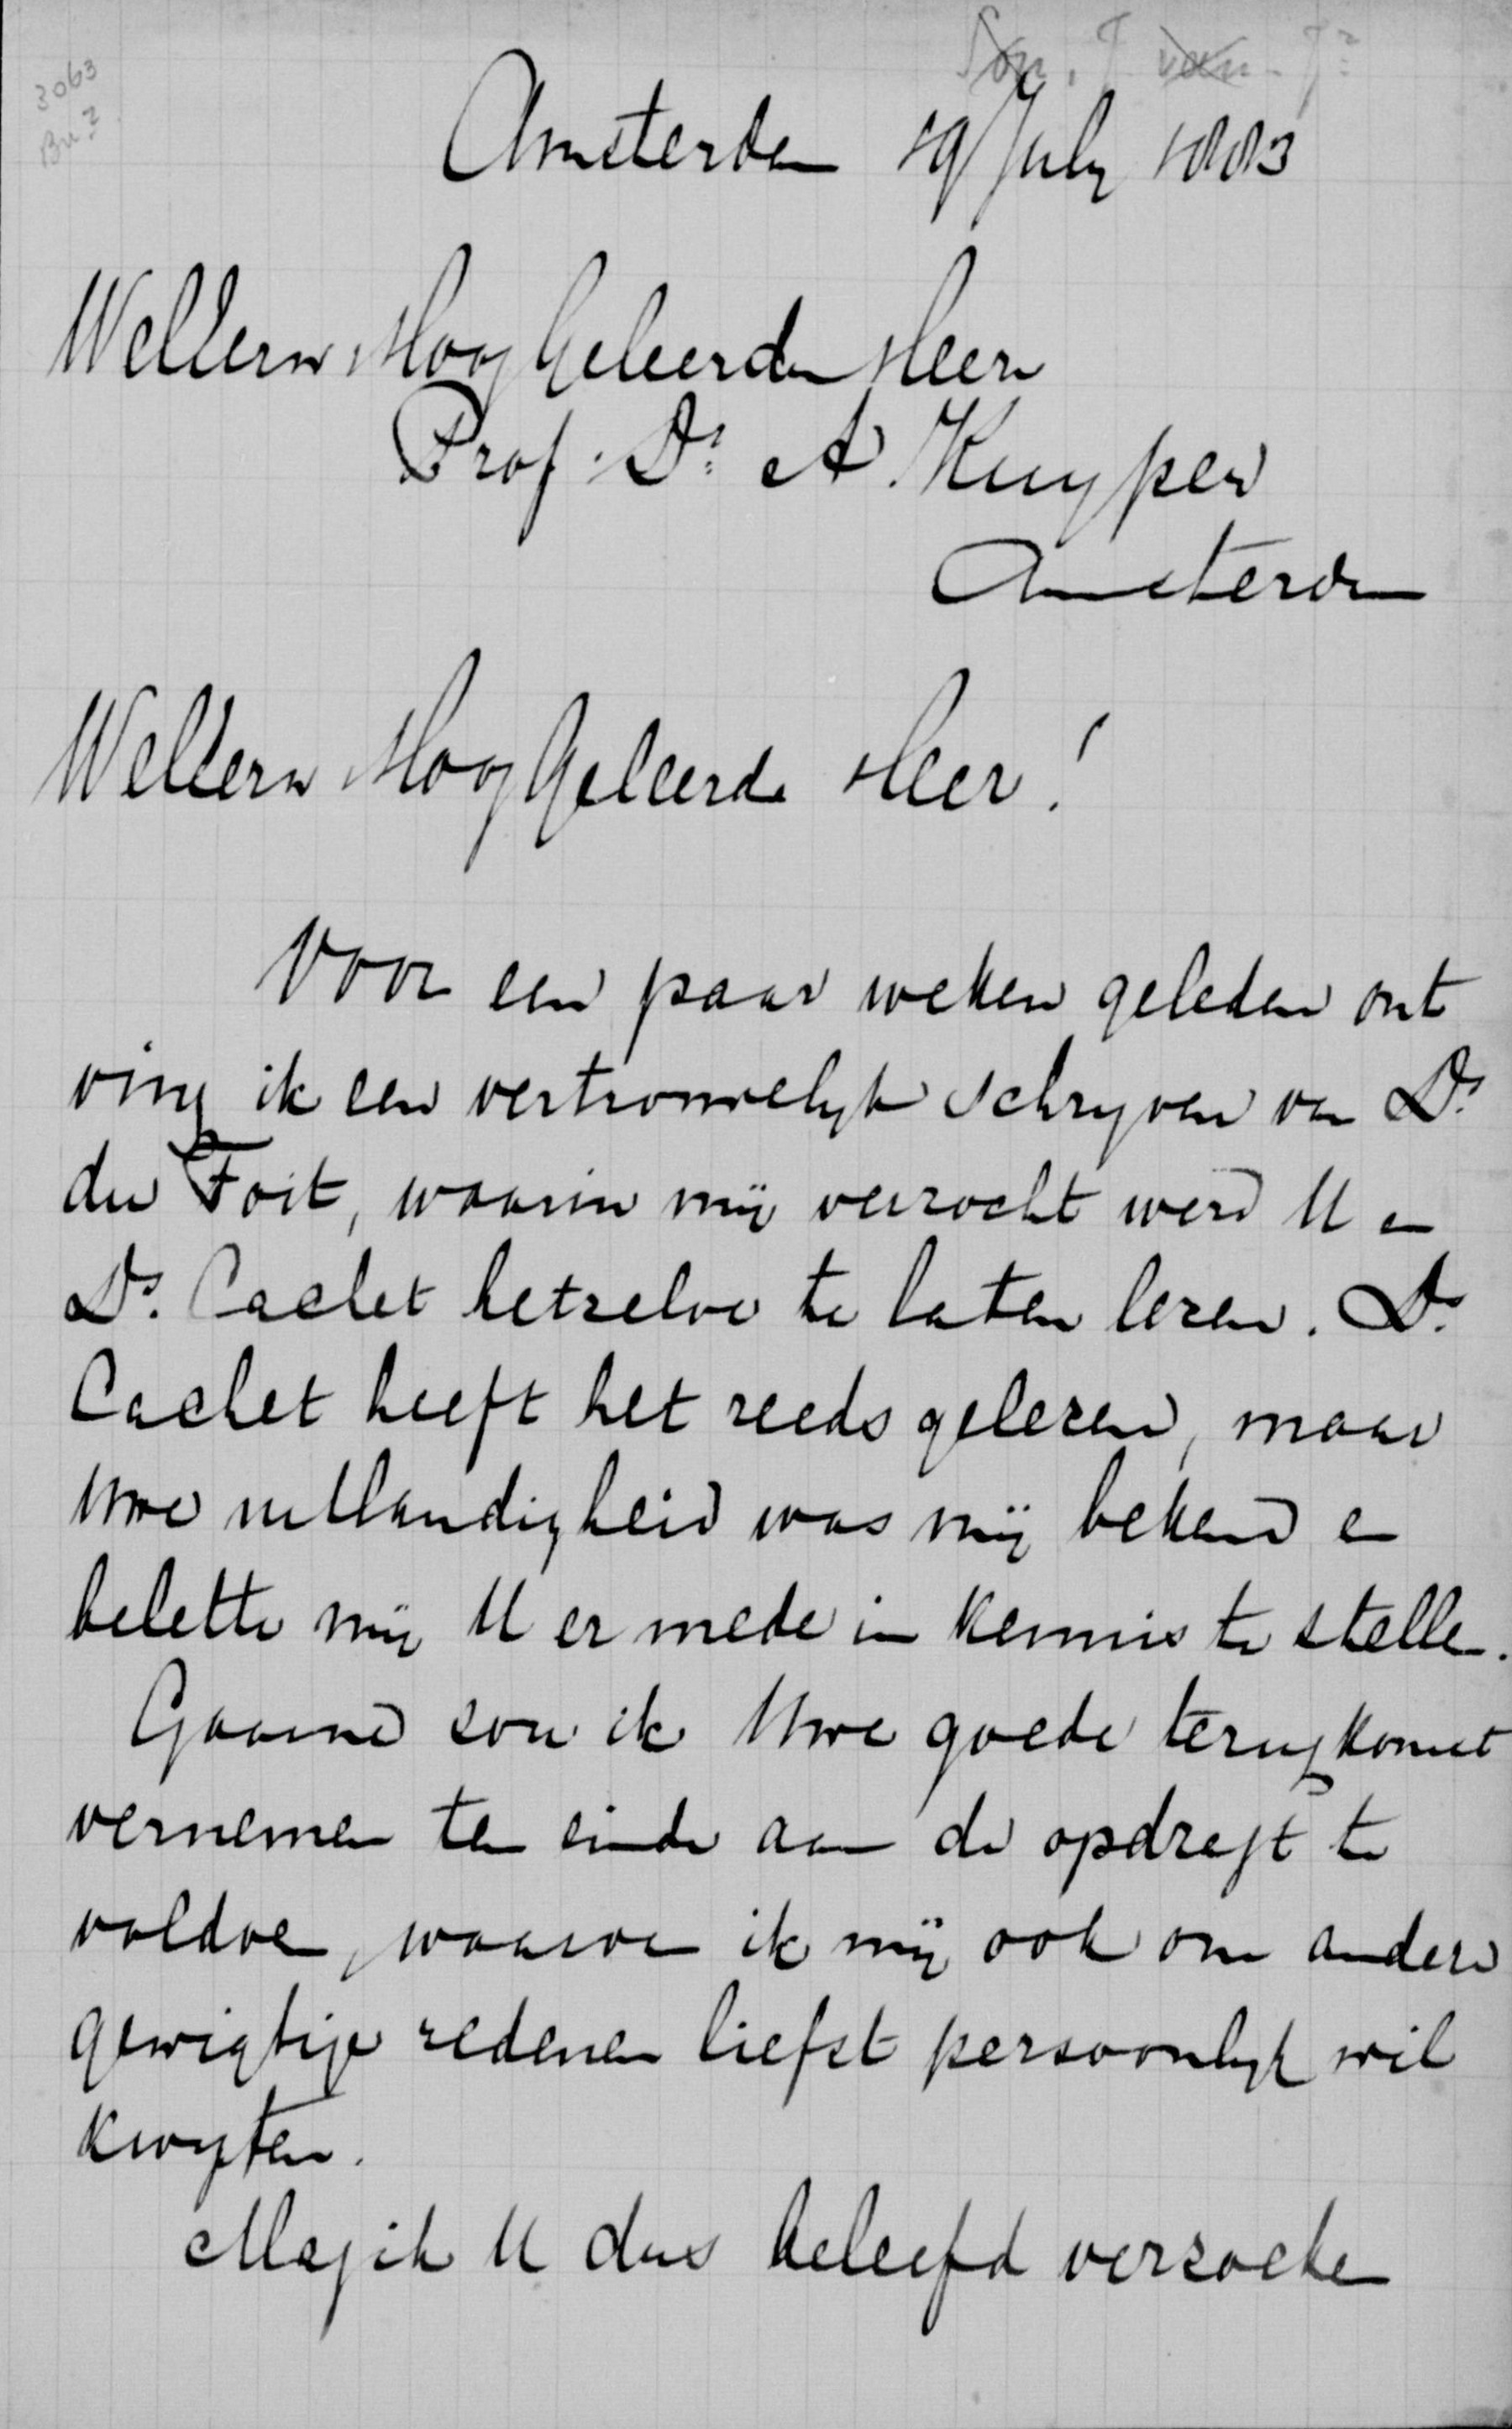 3063
Br ?
Son. J van Jr
Amsterdam 19 July 1883
WelEerw HoogGeleerden Heer
Prof. Dr. A. Kuyper
Amsterdam
WelEerw HoogGeleerde Heer!
Voor een paar weken geleden ont
ving ik een vertrouwelyk schryven van Ds
du Toit, waarin mij verzocht werd U en
Ds. Cachet hetzelve te laten lezen. Ds.
Cachet heeft het reeds gelezen, maar
Uwe uitlandigheid was mij bekend en
belette mij U er mede in kennis te stellen.
Gaarne zou ik Uwe goede terugkomst
vernemen ten einde aan de opdragt te
voldoen, waarvan ik mij ook om andere
gewigtige redenen liefst persoonlyk wil
kwyten.
Mag ik U dus beleefd verzoeken